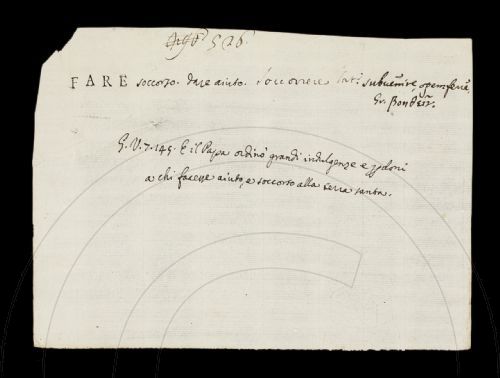 526
FARE soccorso. Dare aiuto. Soccorrere. Lat. subuenire, opem ferre
G. V. 7. 145. E il Papa ordinò grandi indulgenze e pdoni
a chi facesse aiuto, e soccorso alla terra santa.